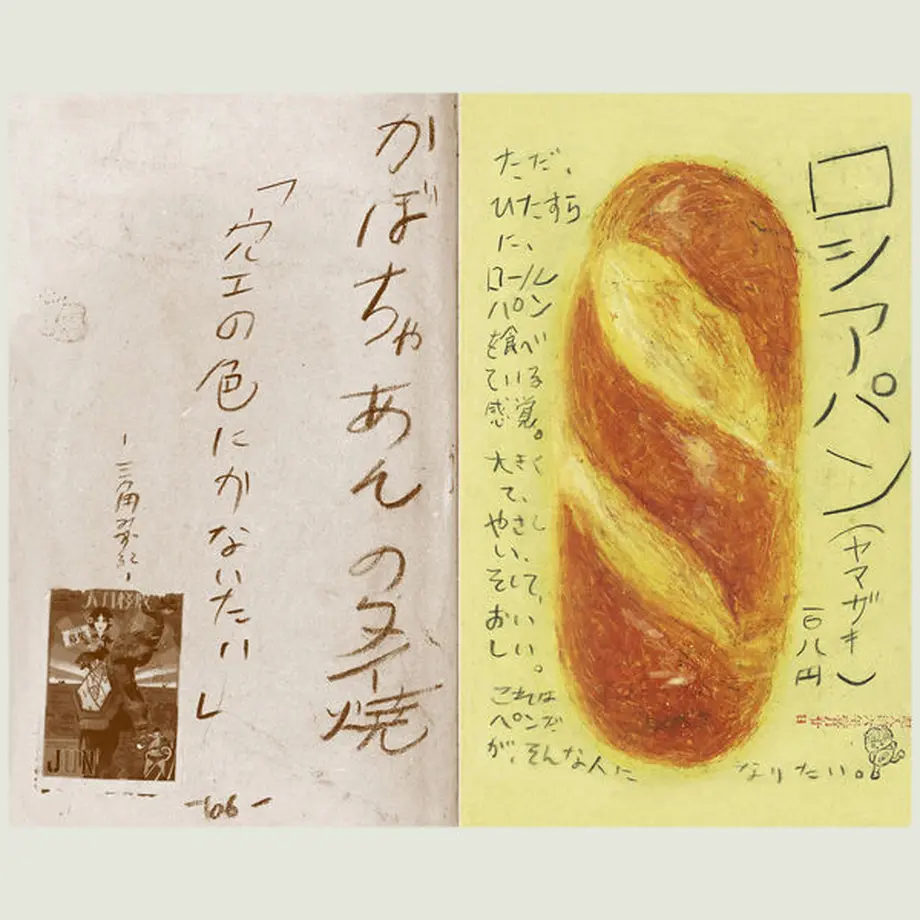 ロシアパン(ヤマザキ)
百八円
ただ、
ひたすら
に、
ロール
パン
を食べ
ている
感覚。
大きく
て、
やさし
い、
そして、
おい
しい。
これは
ペンだ
が、そんな人に なりたい。
かぼちゃあんのタイ焼
「空の色にかないたい」
-三角みづ紀-
JUN